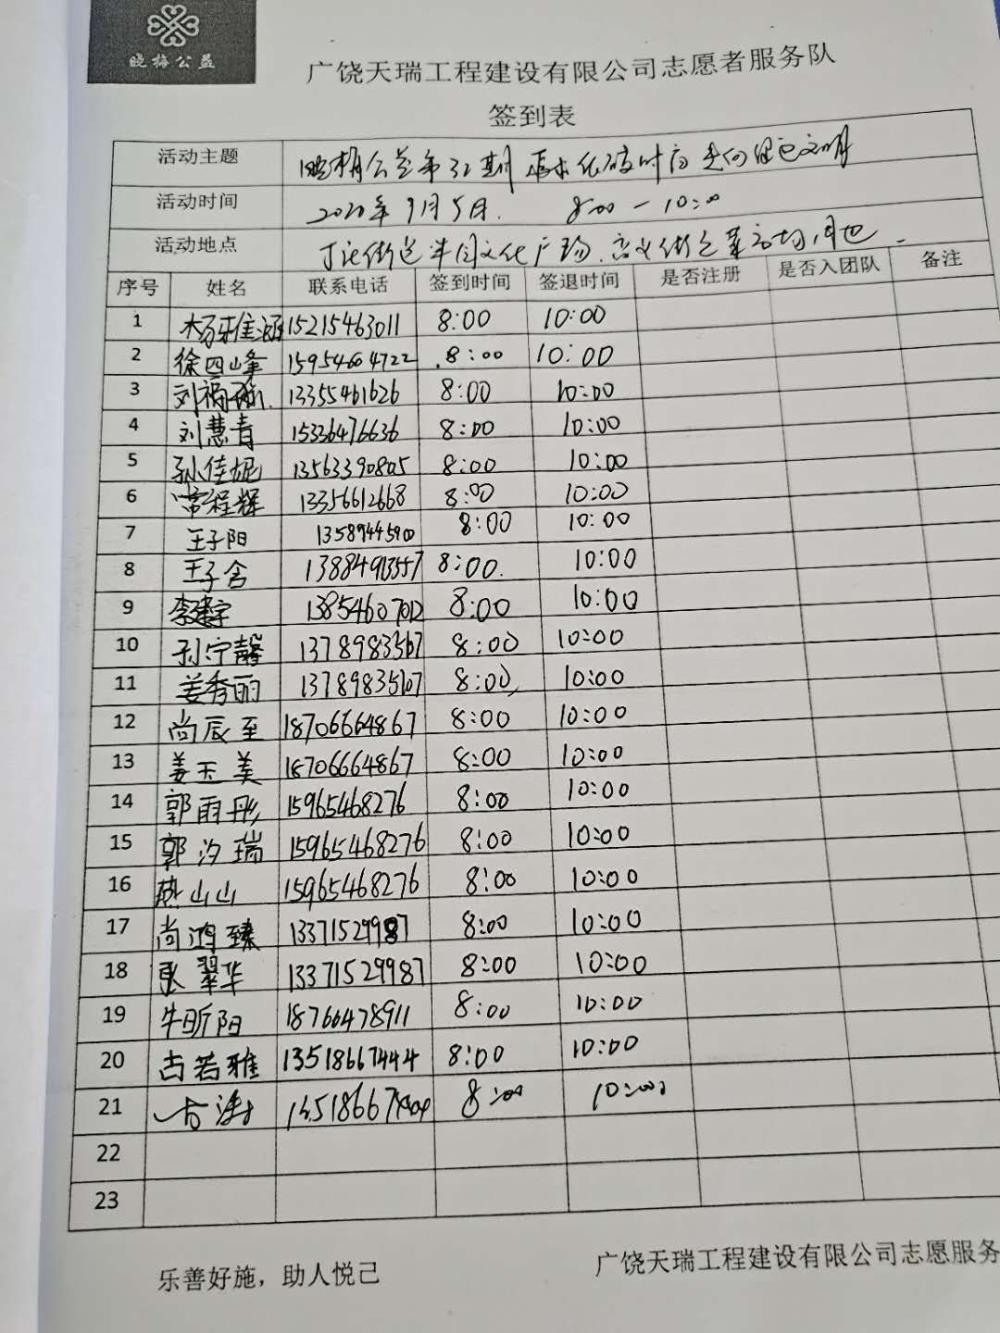 晓梅公益
广饶天瑞工程建设有限公司志愿者服务队
签到表
活动主题 晓梅公益第32期 走向文明
活动时间 2020年9月5日. 8:00-10:00
活动地点 街道 文化广场
序号 姓名 联系电话 签到时间 签退时间 是否注册 是否入团队 备注
1 杨雅涵 15215463011 8:00 10:00
2 徐四峰 15954604722 8:00 10:00
3 刘 13355461626 8:00 10:00
4 刘慧青 15336476636 8:00 10:00
5 孙佳妮 13563390805 8:00 10:00
6 常程辉 13356612668 8:00 10:00
7 王子阳 13589445900 8:00 10:00
8 王子含 13884913557 8:00. 10:00
9 李建宇 13854607012 8:00 10:00
10 孙宁馨 13789835167 8:00 10:00
11 姜秀丽 13789835167 8:00 10:00
12 尚辰至 18706664867 8:00 10:00
13 姜玉美 18706664867 8:00 10:00
14 郭雨彤 15965468276 8:00 10:00
15 郭汐瑞 15965468276 8:00 10:00
16 燕山山 15965468276 8:00 10:00
17 尚鸿臻 13371529987 8:00 10:00
18 张翠华 13371529987 8:00 10:00
19 牛昕阳 18766478911 8:00 10:00
20 古若雅 13518667444 8:00 10:00
21 古涛 8:00 10:00
22
23
乐善好施，助人悦己
广饶天瑞工程建设有限公司志愿服务